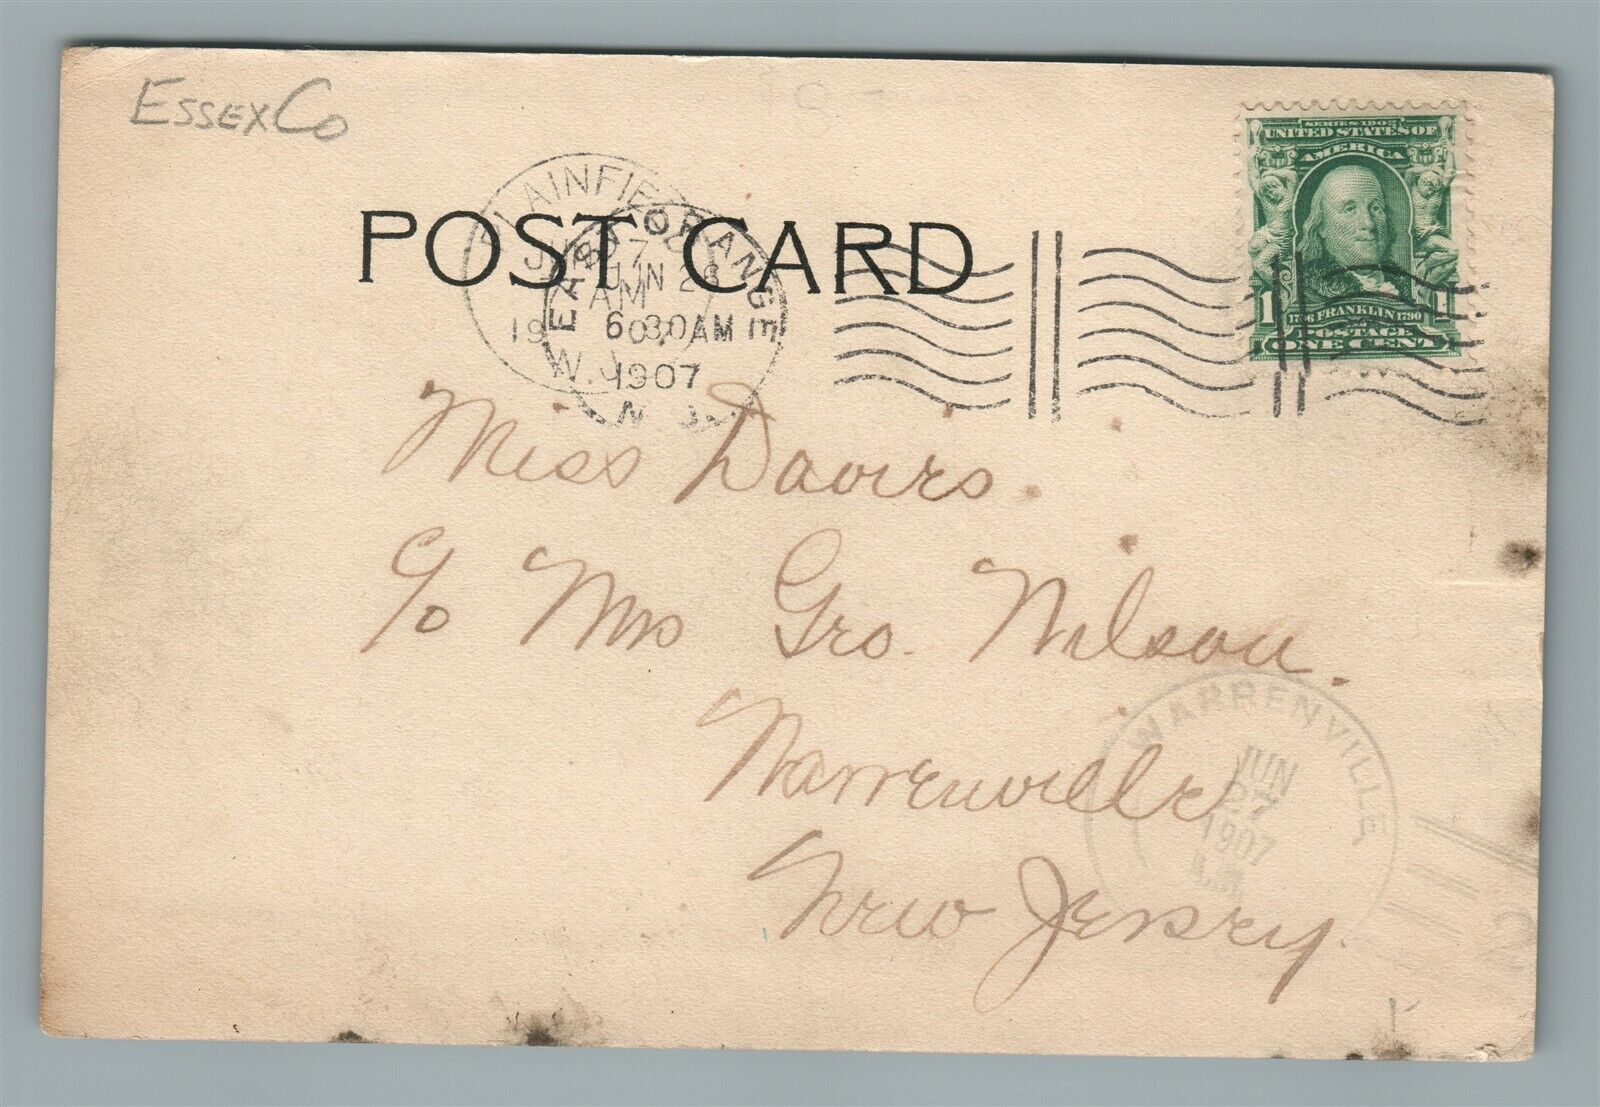 Essex Co
SERIES 1902
UNITED STATES OF
AMERICA
1 1
1706 FRANKLIN 1790
POSTAGE
ONE CENT
POST CARD
PLAINFIELD
JUN 27
AM
1907
N.J.
EAST ORANGE
JUN 26
6 30 AM
1907
N.J.
Miss Davies.
c/o Mrs Geo. Wilson.
Warrenville
New Jersey.
WARRENVILLE
JUN
27
1907
A.M.